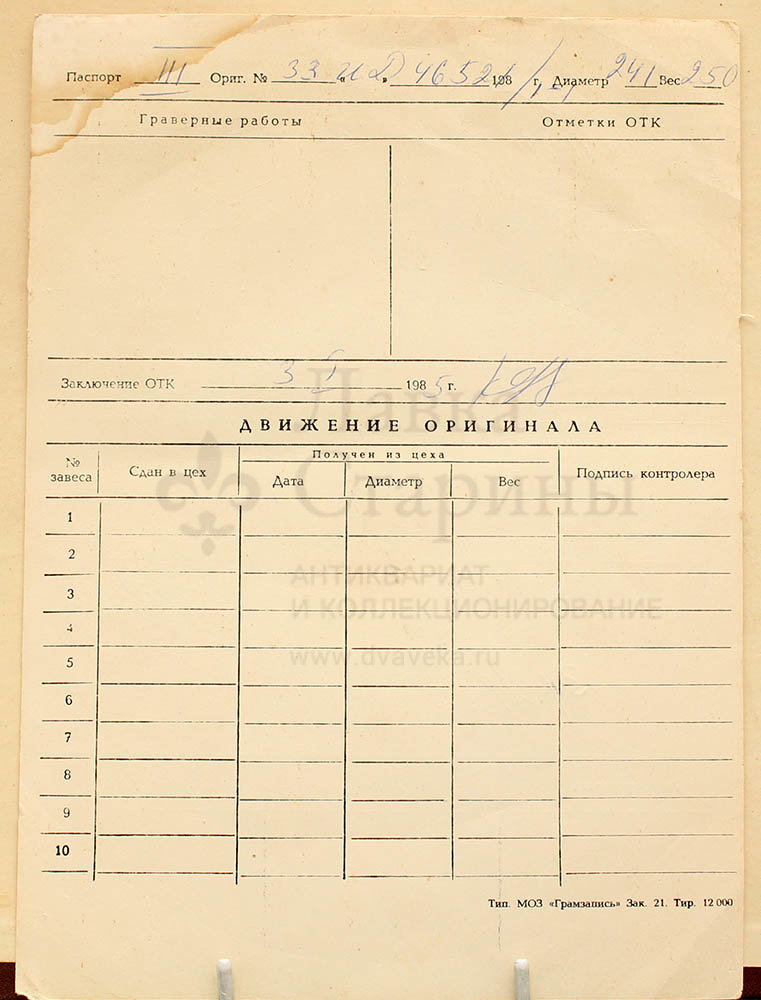 Паспорт III Ориг. № 33 « Д » 46521 198 г. Диаметр 241 Вес 250
Граверные работы Отметки ОТК
Заключение ОТК 3 I 1985 г.
ДВИЖЕНИЕ ОРИГИНАЛА
№ завеса Сдан в цех Получен из цеха Подпись контролера
Дата Диаметр Вес
1
2
3
4
5
6
7
8
9
10
Лавка
Старины
АНТИКВАРИАТ
И КОЛЛЕКЦИОНИРОВАНИЕ
www.dvaveka.ru
Тип. МОЗ «Грамзапись» Зак. 21. Тир. 12 000